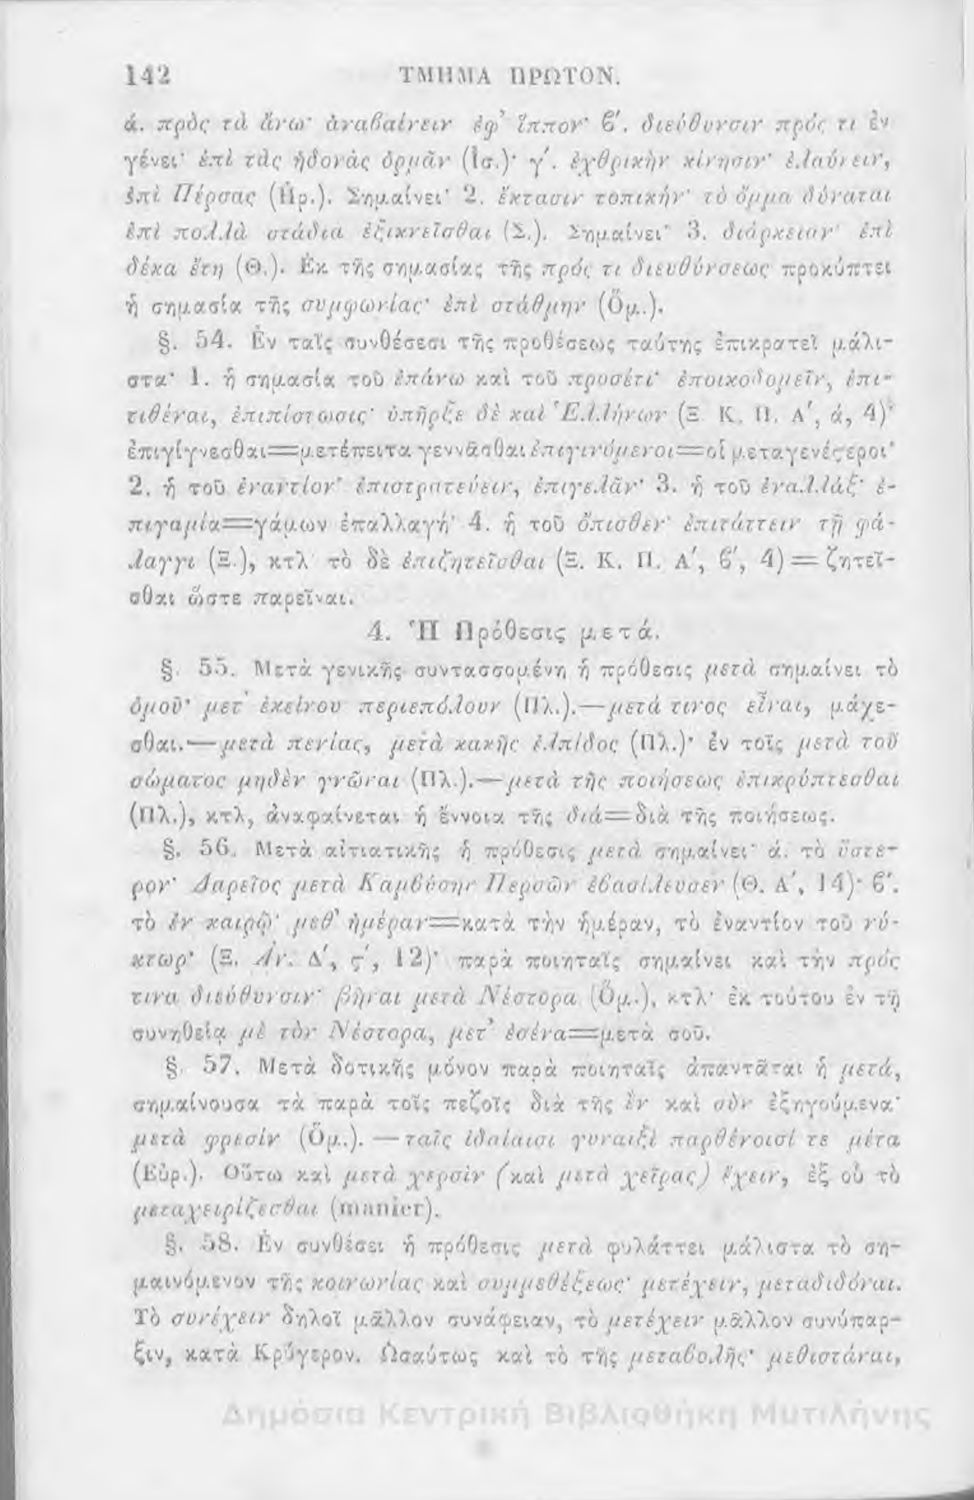 142 ΤΜΗΜΑ ΠΡΩΤΟΝ.
ά. πρὸς τὰ ἄνω· ἀναβαίνειν ἐφ' ἵππον· β'. διεύθυνσιν πρός τι ἐν
γένει· ἐπὶ τὰς ἡδονὰς ὁρμᾶν (Ἰσ.)· γ'. ἐχθρικὴν κίνησιν· ἐλαύνειν,
ἐπὶ Πέρσας (Ἡρ.). Σημαίνει· 2. ἔκτασιν τοπικήν· τὸ ὄμμα δύναται
ἐπὶ πολλὰ στάδια ἐξικνεῖσθαι (Ξ.). Σημαίνει· 3. διάρκειαν· ἐπὶ
δέκα ἔτη (Θ.). Ἐκ τῆς σημασίας τῆς πρός τι διευθύνσεως προκύπτει
ἡ σημασία τῆς συμφωνίας· ἐπὶ στάθμην (Ὁμ.).
§. 54. Ἐν ταῖς συνθέσεσι τῆς προθέσεως ταύτης ἐπικρατεῖ μάλι-
στα· 1. ἡ σημασία τοῦ ἐπάνω καὶ τοῦ προσέτι· ἐποικοδομεῖν, ἐπι-
τιθέναι, ἐπιπίστωσις· ὑπῆρξε δὲ καὶ Ἑλλήνων (Ξ. Κ. Π. Α', ά, 4)·
ἐπιγίγνεσθαι=μετέπειτα γεννᾶσθαι ἐπιγινόμενοι=οἱ μεταγενέϛεροι·
2. ἡ τοῦ ἐναντίον· ἐπιστρατεύειν, ἐπιγελᾶν· 3. ἡ τοῦ ἐναλλάξ· ἐ-
πιγαμία=γάμων ἐπαλλαγή· 4. ἡ τοῦ ὄπισθεν· ἐπιτάττειν τῇ φά-
λαγγι (Ξ.), κτλ· τὸ δὲ ἐπιζητεῖσθαι (Ξ. Κ. Π. Α', β', 4) = ζητεῖ-
σθαι ὥστε παρεῖναι.
4. Ἡ Πρόθεσις μετά.
§. 55. Μετὰ γενικῆς συντασσομένη ἡ πρόθεσις μετὰ σημαίνει τὸ
ὁμοῦ· μετ' ἐκείνου περιεπόλουν (Πλ.).—μετά τινος εἶναι, μάχε-
σθαι.—μετὰ πενίας, μετὰ κακῆς ἐλπίδος (Πλ.)· ἐν τοῖς μετὰ τοῦ
σώματος μηδὲν γνῶναι (Πλ.).—μετὰ τῆς ποιήσεως ἐπικρύπτεσθαι
(Πλ.), κτλ, ἀναφαίνεται ἡ ἔννοια τῆς διά=διὰ τῆς ποιήσεως.
§. 56. Μετὰ αἰτιατικῆς ἡ πρόθεσις μετὰ σημαίνει· ά. τὸ ὕστε-
ρον· Δαρεῖος μετὰ Καμβύσην Περσῶν ἐβασίλευσεν (Θ. Α', 14)· β'.
τὸ ἐν καιρῷ· μεθ' ἡμέραν=κατὰ τὴν ἡμέραν, τὸ ἐναντίον τοῦ νύ-
κτωρ· (Ξ. Ἀν. Δ', ϛ', 12)· παρὰ ποιηταῖς σημαίνει καὶ τὴν πρός
τινα διεύθυνσιν· βῆναι μετὰ Νέστορα (Ὁμ.), κτλ· ἐκ τούτου ἐν τῇ
συνηθείᾳ μὲ τὸν Νέστορα, μετ' ἐσένα=μετὰ σοῦ.
§. 57. Μετὰ δοτικῆς μόνον παρὰ ποιηταῖς ἀπαντᾶται ἡ μετά,
σημαίνουσα τὰ παρὰ τοῖς πεζοῖς διὰ τῆς ἐν καὶ σὺν ἐξηγούμενα·
μετὰ φρεσίν (Ὁμ.). — ταῖς ἰδαίαισι γυναιξὶ παρθένοισί τε μέτα
(Εὐρ.). Οὕτω καὶ μετὰ χερσὶν (καὶ μετὰ χεῖρας) ἔχειν, ἐξ οὗ τὸ
μεταχειρίζεσθαι (manier).
§. 58. Ἐν συνθέσει ἡ πρόθεσις μετὰ φυλάττει μάλιστα τὸ ση-
μαινόμενον τῆς κοινωνίας καὶ συμμεθέξεως· μετέχειν, μεταδιδόναι.
Τὸ συνέχειν δηλοῖ μᾶλλον συνάφειαν, τὸ μετέχειν μᾶλλον συνύπαρ-
ξιν, κατὰ Κρύγερον. Ὡσαύτως καὶ τὸ τῆς μεταβολῆς· μεθιστάναι,
Δημόσια Κεντρική Βιβλιοθήκη Μυτιλήνης